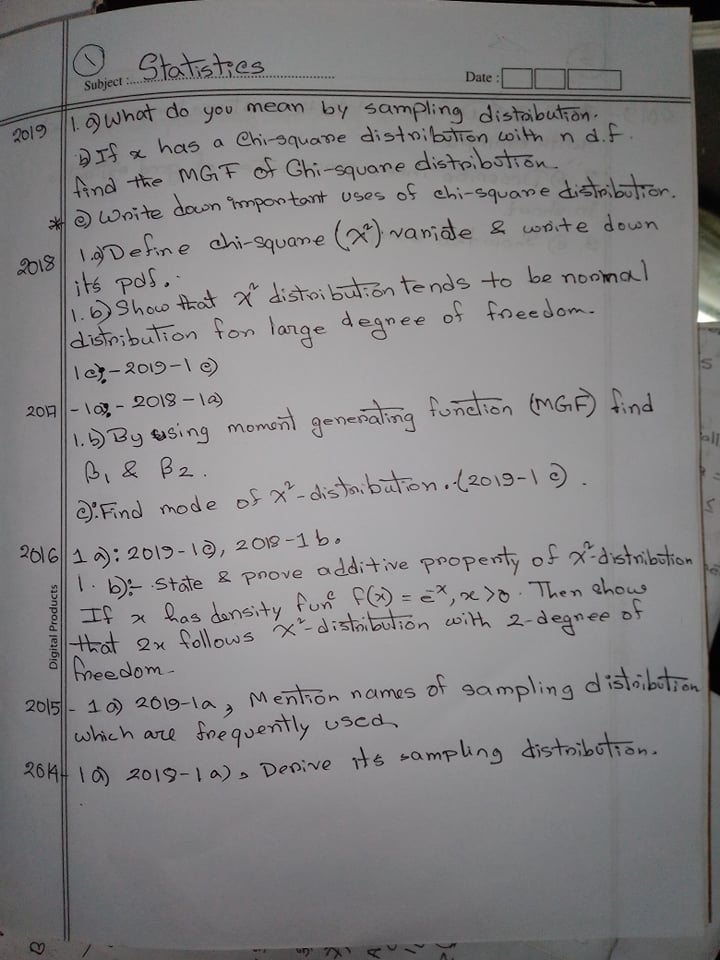 1
Statistics
Subject :
Date :
2019 1. a) What do you mean by sampling distribution.
b) If x has a Chi-square distribution with n d.f.
find the MGF of Chi-square distribution.
* c) Write down important uses of chi-square distribution.
2018 1.a) Define chi-square (χ²) variate & write down
its pdf.
1.b) Show that χ² distribution tends to be normal
distribution for large degree of freedom.
1c:- 2019-1c)
2017 - 1a:- 2018-1a)
1.b) By using moment generating function (MGF) find
β₁ & β₂.
c): Find mode of χ²-distribution. (2019-1c).
2016 1a): 2019-1c), 2018-1b.
1. b):- State & prove additive property of χ²-distribution
If x has density funᶜ f(x) = e⁻ˣ, x>0. Then show
that 2x follows χ²-distribution with 2-degree of
freedom-
2015 - 1a) 2019-1a, Mention names of sampling distribution
which are frequently used
2014 - 1a) 2018-1a), Derive its sampling distribution.
Digital Products